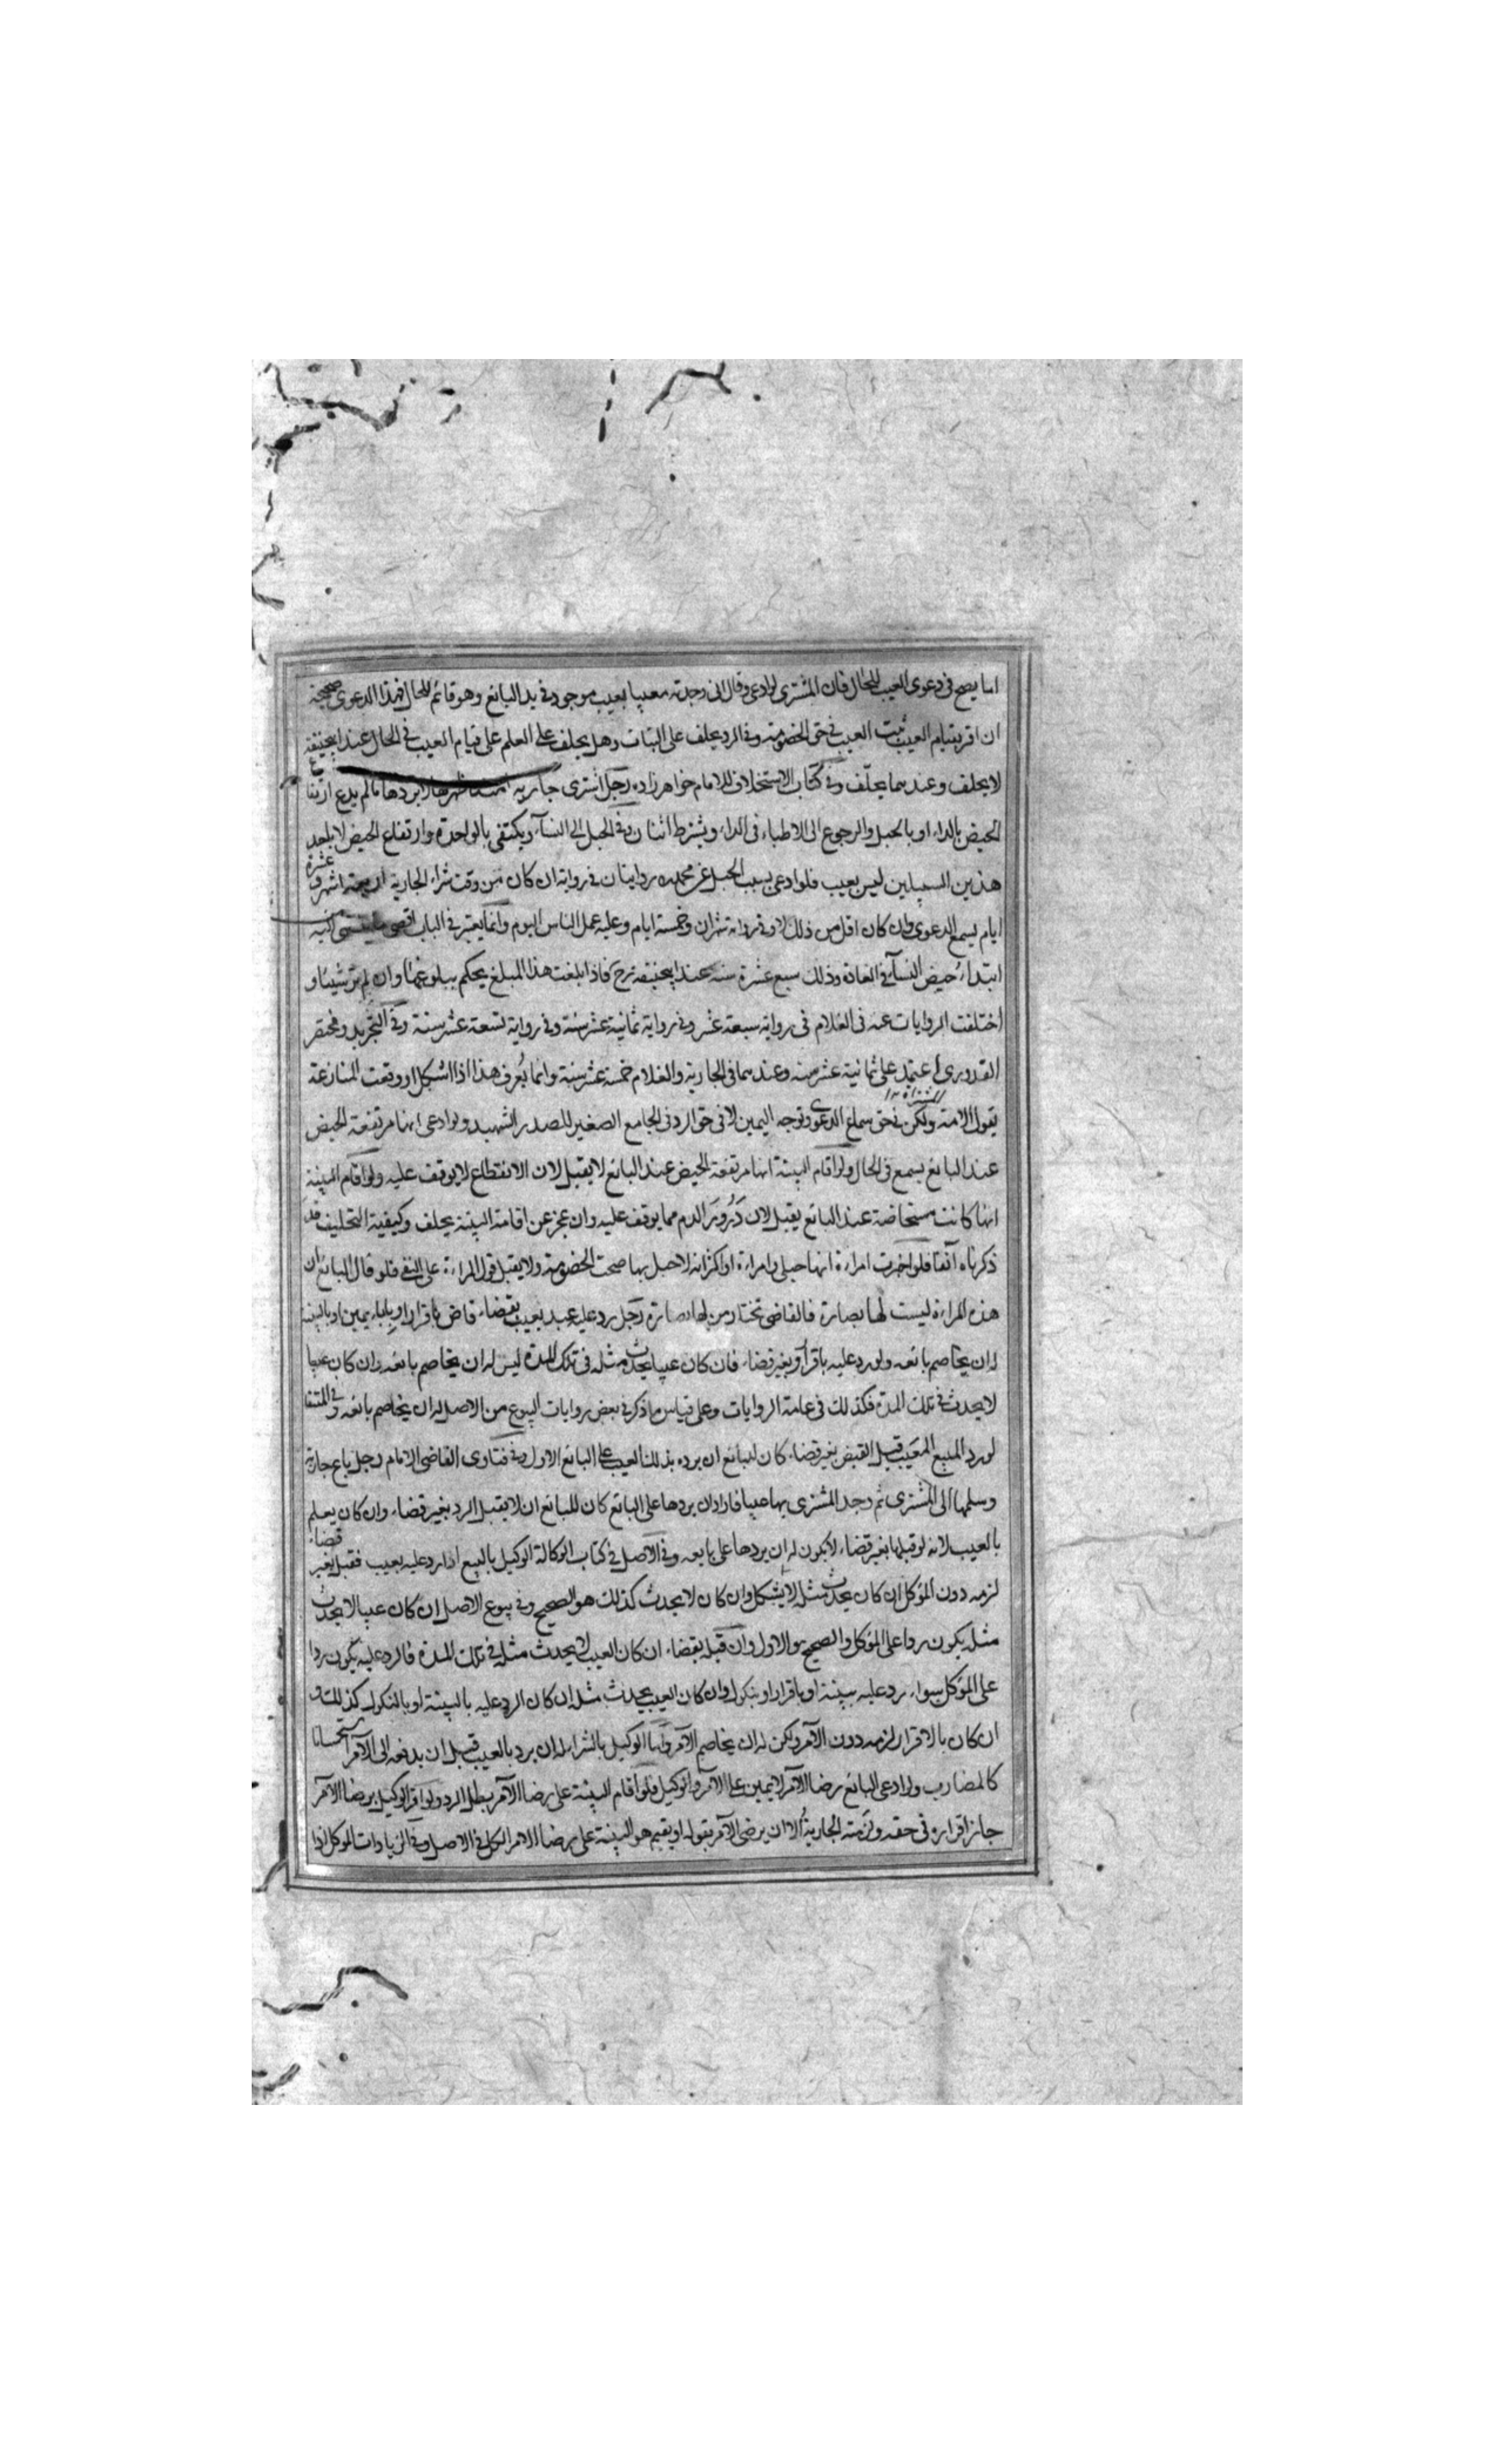 اما يصح فى دعوى العيب للحال فان المشترى لو ادعى وقال انى وجدته معيبا بعيب موجود فى يد البائع وهو قائم للحال فهذا الدعوى صحيحة
ان اقر بقيام العيب ثبت العيب فى حق الخصومة وفى الرد يحلف على البتات وهل يحلف على العلم على قيام العيب فى الحال عند ابيحنيفة
لا يحلف وعندهما يحلف وفى كتاب الاستحلاف للامام خواهرزاده رجل اشترى جارية يردها مالم يدع ارتفاع
الحيض بالداء او بالحبل والرجوع الى الاطباء فى الداء ويشترط اثنان وفى الحبل الى النسآء ويكتفى بالواحدة وارتفاع الحيض لا باحد
هذين السببين ليس بعيب فلو ادعى بسبب الحبل عن محمد روايتان فى رواية ان كان من وقت شراء الجارية اربعة اشهر وعشرة
ايام يسمع الدعوى وان كان اقل من ذلك لا وفى رواية شهران وخمسة ايام وعليه عمل الناس اليوم وانما يعتبر فى الباب اقصى ما ينتهى اليه
ابتداء حيض النسآء فى العادة وذلك سبع عشرة سنه عند ابيحنيفة رح فاذا بلغت هذا المبلغ يحكم ببلوغها وان لم تر شيئا و
اختلفت الروايات عنه فى الغلام فى رواية سبعة عشر وفى رواية ثمانية عشر سنة وفى رواية تسعة عشر سنة وفى التجريد ومختصر
القدورى اعتمد على ثمانية عشر سنه وعندهما فى الجارية والغلام خمسة عشر سنة وانما يعرف هذا اذا اشكل او وقعت المنازعة
بقول الامة ولكن فى حق سماع الدعوى وتوجه اليمين لا فى حق الرد فى الجامع الصغير للصدر الشهيد ولو ادعى انها مرتفعة الحيض
عند البائع يسمع فى الحال ولو اقام البينة انها مرتفعة الحيض عند البائع لا يقبل لان الانقطاع لا يوقف عليه ولو اقام البينة
انها كانت مستحاضة عند البائع يقبل لان درور الدم مما يوقف عليه وان عجز عن اقامة البينة يحلف وكيفية التحليف قد
ذكرناه آنفا فلو اخبرت امراءة انها حبلى وامراءة او اكثر انه لا حبل بها صحت الخصومة ولا يقبل قول المراءة على النفى فلو قال البائع ان
هذه المراءة ليست لها بصارة فالقاضى تختار من لها بصارة رجل رد عليه عبد بعيب بقضاء قاض باقرار او باباء يمين او بالبينة
له ان يخاصم بائعه ولو رد عليه باقرار وبغير قضاء فان كان عيبا يحدث مثله فى تلك المدة ليس له ان يخاصم بائعه وان كان عيبا
لا يحدث فى تلك المدة فكذلك فى عامة الروايات وعلى قياس ما ذكر فى بعض روايات البيوع من الاصل له ان يخاصم بائعه وفى المنتقا
لو رد المبيع المعيب قبل القبض بغير قضاء كان للبائع ان يرده بذلك العيب على البائع الاول وفى فتاوى القاضى الامام رجل باع جارية
وسلمها الى المشترى ثم وجد المشترى بها عيبا فاراد ان يردها على البائع كان للبائع ان لا يقبل الرد بغير قضاء وان كان يعلم
بالعيب لانه لو قبلها بغير قضاء لا يكون له ان يردها على بايعه وفى الاصل فى كتاب الوكالة الوكيل بالبيع اذا رد عليه بعيب فقبل بغير قضاء
لزمه دون المؤكل ان كان يحدث مثله لا يشكل وان كان لا يحدث كذلك هو الصحيح وفى بيوع الاصل ان كان عيبا لا يحدث
مثله يكون ردا على المؤكل والصحيح هو الاول وان قبله بقضاء ان كان العيب لا يحدث مثله فى تلك المدة فالرد عليه يكون ردا
على المؤكل سواء رد عليه ببينة او باقرار او بنكول وان كان العيب يحدث مثله ان كان الرد عليه بالبينة او بالنكول كذلك و
ان كان بالاقرار لزمه دون الآمر ولكن له ان يخاصم الآمر واما الوكيل بالشراء له ان يرد بالعيب قبل ان يدفعه الى الآمر استحسانا
كالمضارب ولو ادعى البائع رضا الآمر لا يمين على الآمر والوكيل فلو اقام البينة على رضا الآمر بطل الرد ولو اقر الوكيل برضا الآمر
جاز اقراره فى حقه ولزمته الجارية الا ان يرضى الآمر بقوله او يقيم هو البينة على رضا الامر الكل فى الاصل وفى الزيادات الموكل اذا